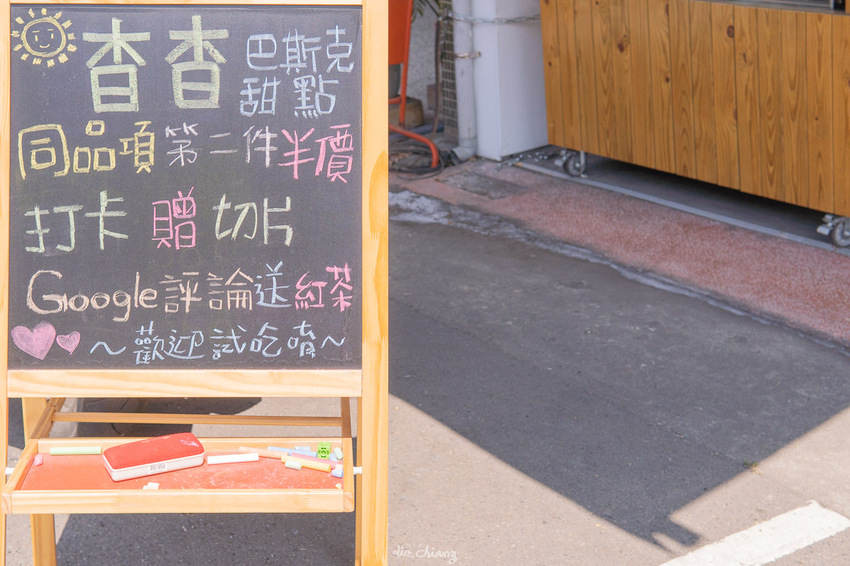 杳杳 巴斯克甜點
同品項第二件半價
打卡贈切片
Google評論送紅茶
～歡迎試吃唷～
Lia Chiang